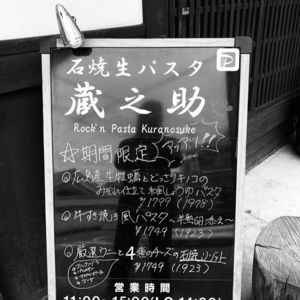 P
石焼生パスタ
蔵之助
Rock'n Pasta Kuranosuke
☆期間限定 アツアツ!!!
広島産 生牡蠣とどっさりキノコの
みぞれ仕立て 和風しょうゆパスタ
¥1799 (1978)
牛すき焼き風パスタ ～半熟卵添え～
¥1749 (1923)
厳選ウニと4種のチーズの石焼リゾット
¥1749 (1923)
ゴーダ
営業時間
11:00~15:00(L.O 14:00)